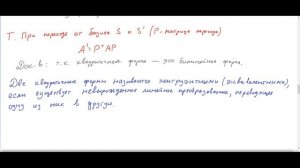 Т. При переходе от базиса S к S' (P - матрица перехода)
A' = PᵀAP
Док-во: т.к. квадратичная форма — это билинейная форма.
Две квадратичные формы называются конгруэнтными (эквивалентными),
если существует невырожденное линейное преобразование, переводящее
одну из них в другую.